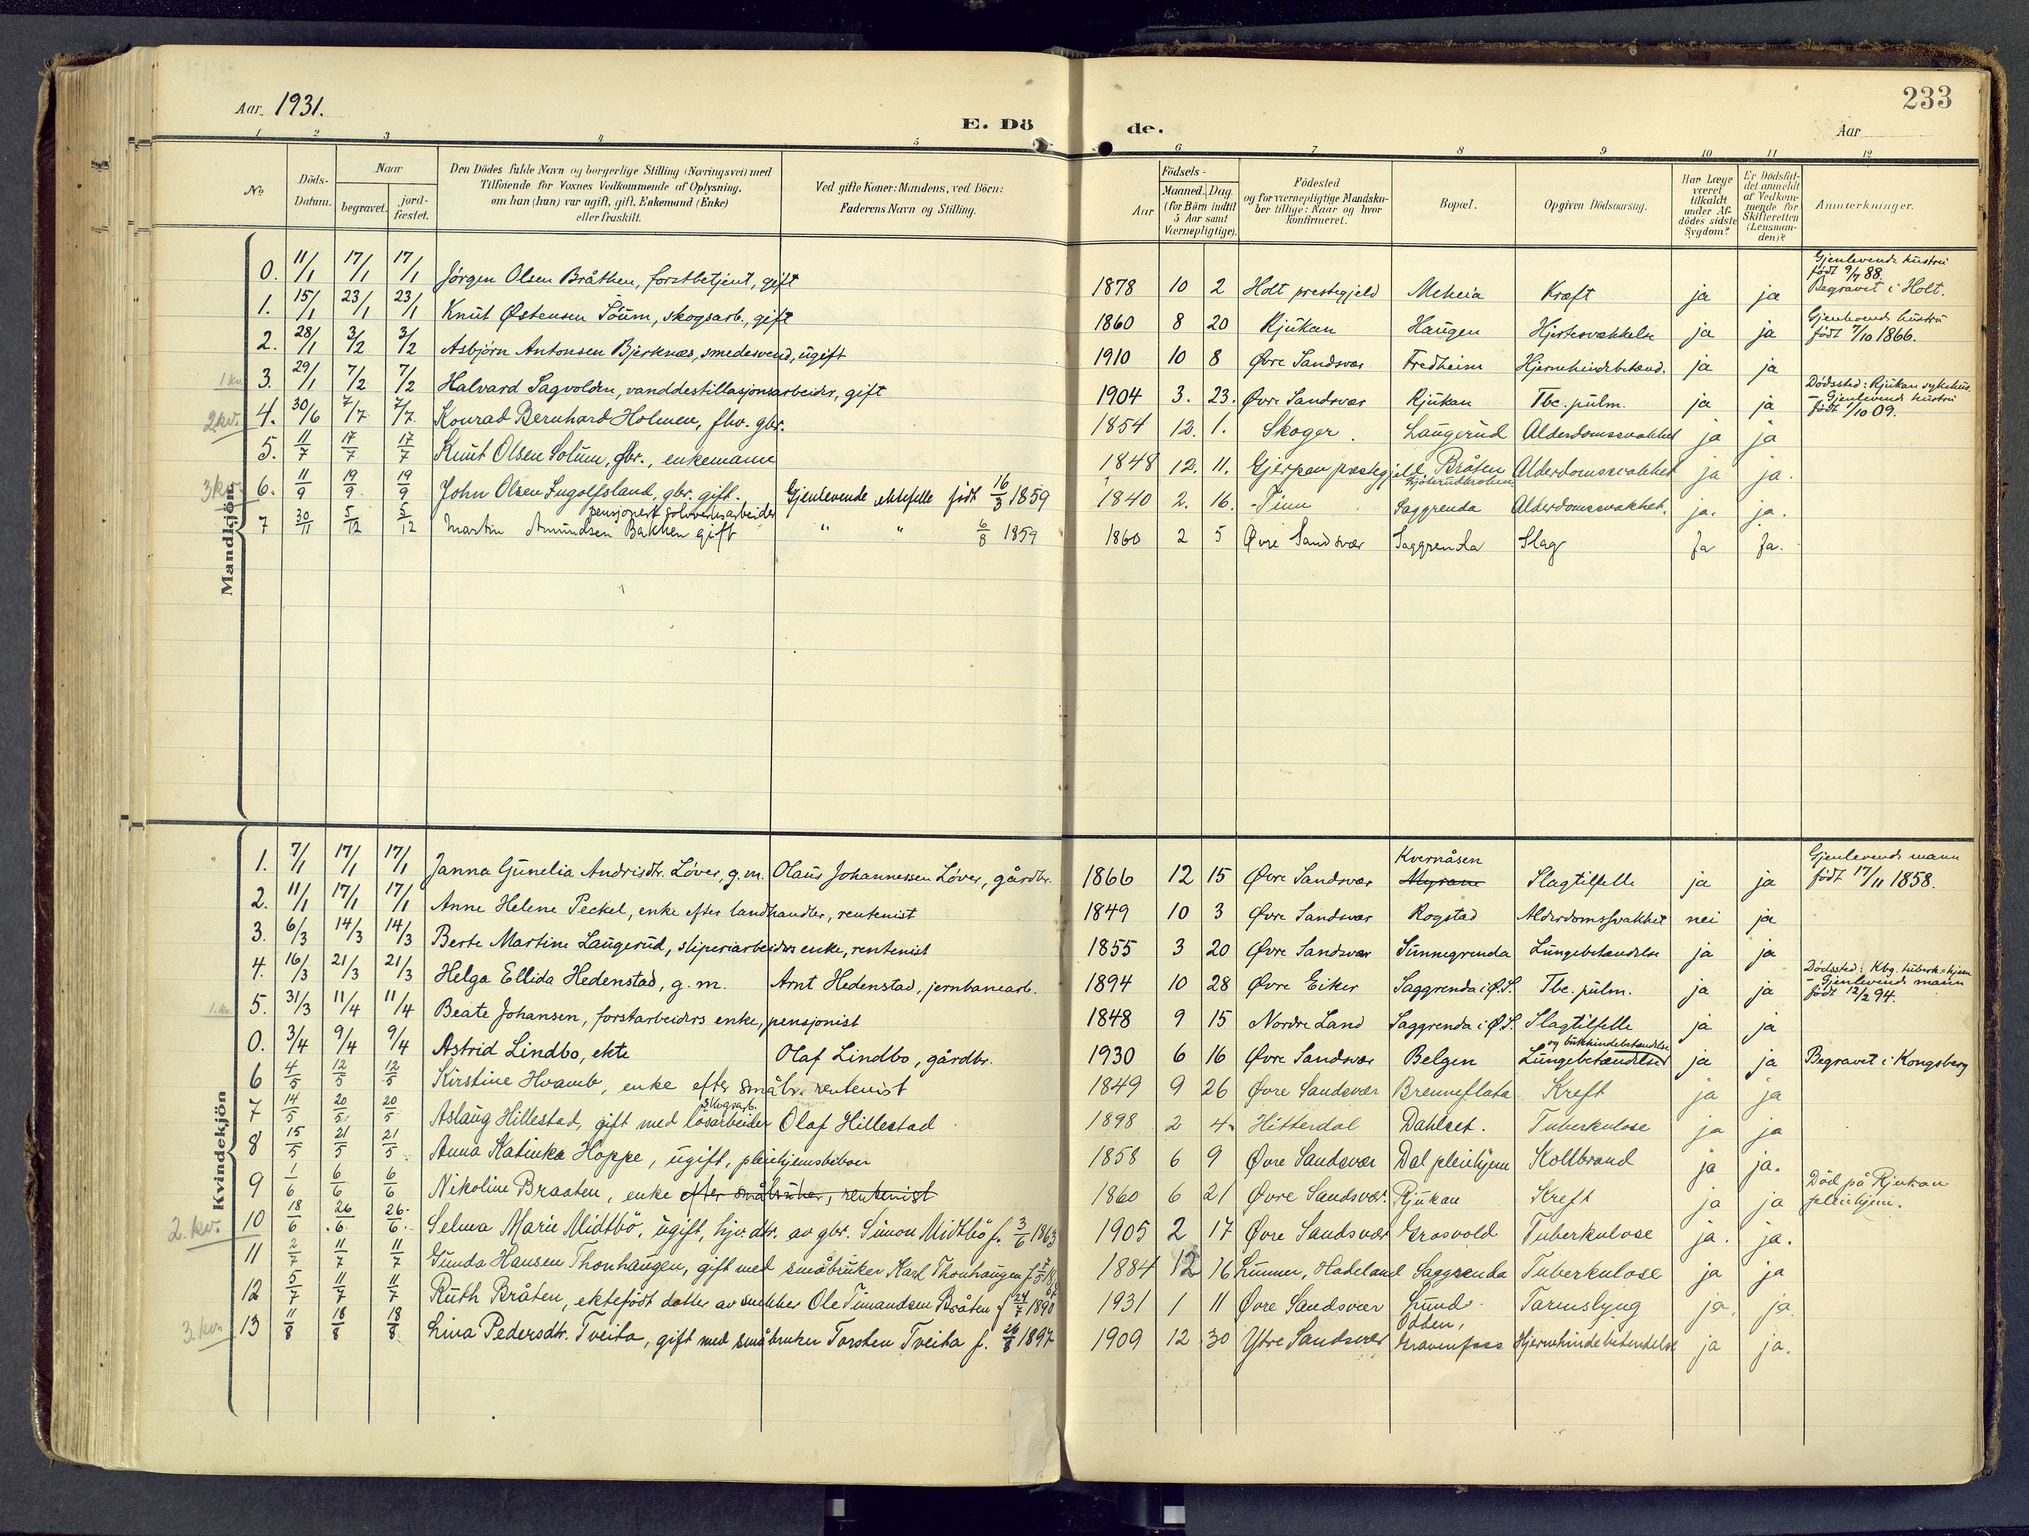 Aar. 1931.
E. Dö
de.
233
Aar
1 2 3 4 5 6 7 8 9 10 11 12
No
Döds-
Datum.
Naar
begravet.
jord-
fæstet.
Den Dödes fulde Navn og borgerlige Stilling (Næringsvei) med
Tilföiende for Voxnes Vedkommende af Oplysning,
om han (hun) var ugift, gift, Enkemand (Enke)
eller fraskilt.
Ved gifte Koner: Mandens, ved Börn:
Faderens Navn og Stilling.
Aar
Födsels-
Maaned. Dag.
(for Börn indtil
5 Aar samt
Værnepligtige).
Födested
og for værnepligtige Mandska-
ber tillige: Naar og hvor
konfirmeret.
Bopæl.
Opgiven Dödsaarsag.
Har Læge
været
tilkaldt
under Af-
dödes sidste
Sygdom?
Er Dödsfal-
det anmeldt
af Vedkom-
mende for
Skifteretten
(Lensman-
den)?
Anmærkninger.
Mandkjön
0. 11/1 17/1 17/1 Jörgen Olsen Bråthen, forstbetjent, gift 1878 10 2 Holt prestegjeld Meheia Kræft ja ja Gjenlevende hustru født 9/7 88. Begravet i Holt.
1. 15/1 23/1 23/1 Knut Østensen Söum, skogsarb., gift 1860 8 20 Rjukan Haugen Hjertesvækkelse ja ja Gjenlevende hustru født 7/10 1866.
2. 28/1 3/2 3/2 Asbjörn Antonsen Bjerknæs, smedesvend, ugift 1910 10 8 Øvre Sandsvær Fredheim Hjernehindebetænd. ja ja
1 kv. 3. 29/1 7/2 7/2 Halvard Sagvolden, vanddestillasjonsarbeider, gift 1904 3. 23. Øvre Sandsvær Rjukan Tbc. pulm. ja ja Dødssted: Rjukan sykehus. – Gjenlevende hustru født 1/10 09.
2 kv. 4. 30/6 7/7 7/7 Konrad Bernhard Holmen, fhv. gbr. 1854 12. 1. Skoger. Laugerud Alderdomssvakhet ja ja
5. 11/7 17/7 17/7 Knut Olsen Solum, gbr., enkemann 1848 12. 11. Gjerpen prestegjeld Bråten Alderdomssvakhet ja ja.
3 kv. 6. 11/9 19/9 19/9 John Olsen Ingolfsland, gbr. gift. Gjenlevende ektefelle født 16/3 1859 1840 2. 16. Tinn Saggrenda Alderdomssvakhet. ja. ja.
pensjonert sølvverksarbeider
7 30/11 5/12 5/12 Martin Amundsen Bakken gift " " 6/8 1859 1860 2 5 Øvre Sandsvær Saggrenda Slag Ja Ja.
Kvindekjön
1. 7/1 17/1 17/1 Janna Gunelia Andrisdtr. Løver, g.m. Olaus Johannessen Løver, gårdbr. 1866 12 15 Øvre Sandsvær Kvernåsen Myrane Slagtilfelle ja ja Gjenlevende mann født 17/11 1858.
2. 11/1 17/1 17/1 Anne Helene Peckel, enke efter landhandler, rentenist 1849 10 3 Øvre Sandsvær Rogstad Alderdomssvakhet nei ja
3. 6/3 14/3 14/3 Berte Martine Laugerud, sliperiarbeiders enke, rentenist 1855 3 20 Øvre Sandsvær Sunnegrenda Lungebetændelse ja ja
4. 16/3 21/3 21/3 Helga Ellida Hedenstad, g.m. Arnt Hedenstad, jernbanearb. 1894 10 28 Øvre Eiker Saggrenda i Ø.S. Tbc. pulm. ja ja Dødssted: Kbg. tuberk-hjem – Gjenlevende mann født 12/2 94.
1. kv. 5. 31/3 11/4 11/4 Beate Johansen, forstarbeiders enke, pensjonist 1848 9 15 Nordre Land Saggrenda i Ø.S. Slagtilfelle ja ja
0. 3/4 9/4 9/4 Astrid Lindbo, ekte Olaf Lindbo, gårdbr. 1930 6 16 Øvre Sandsvær Belgen Lungebetændelse og bukhindebetændelse ja ja Begravet i Kongsberg
6 4/5 12/5 12/5 Kirstine Hvamb, enke efter småbr. rentenist 1849 9 26 Øvre Sandsvær Brenneflata Kreft ja ja
7 14/5 20/5 20/5 Aslaug Hillestad, gift med skogsarb. løsarbeider Olaf Hillestad 1898 2 4 Hitterdal Dahlset. Tuberkulose ja ja
8 15/5 21/5 21/5 Anna Katinka Hoppe, ugift, pleiehjemsbeboer 1858 6 9 Øvre Sandsvær Dal pleiehjem Koldbrand ja ja.
9 1/6 6/6 6/6 Nikoline Braaten, enke efter småbruker, rentenist 1860 6 21 Øvre Sandsvær. Rjukan Kreft ja ja Død på Rjukan pleiehjem.
2. kv. 10 18/6 26/6 26/6 Selma Marie Midtbö, ugift, hjv. dtr. av gbr. Simon Midtbö f. 3/6 1863 1905 2 17 Øvre Sandsvær Grosvold Tuberkulose ja. ja.
11 2/7 11/7 11/7 Gunda Hansen Thonhaugen, gift med småbruker Karl Thonhaugen 1884 12 16 Lunner, Hadeland Saggrenda Tuberkulose ja ja
12 5/7 11/7 11/7 Ruth Bråten, ektefödt datter av snekker Ole Timandsen Bråten f. 24/7 1890 1931 1 11 Øvre Sandsvær Lunds. Tarmslyng ja. ja.
3. kv. 13 11/8 18/8 18/8 Lina Pedersdtr. Tveita, gift med småbruker Torsten Tveita f. 26/8 1897 1909 12 30 Ytre Sandsvær Odden, Gravenfoss Hjernehindebetendelse ja ja.